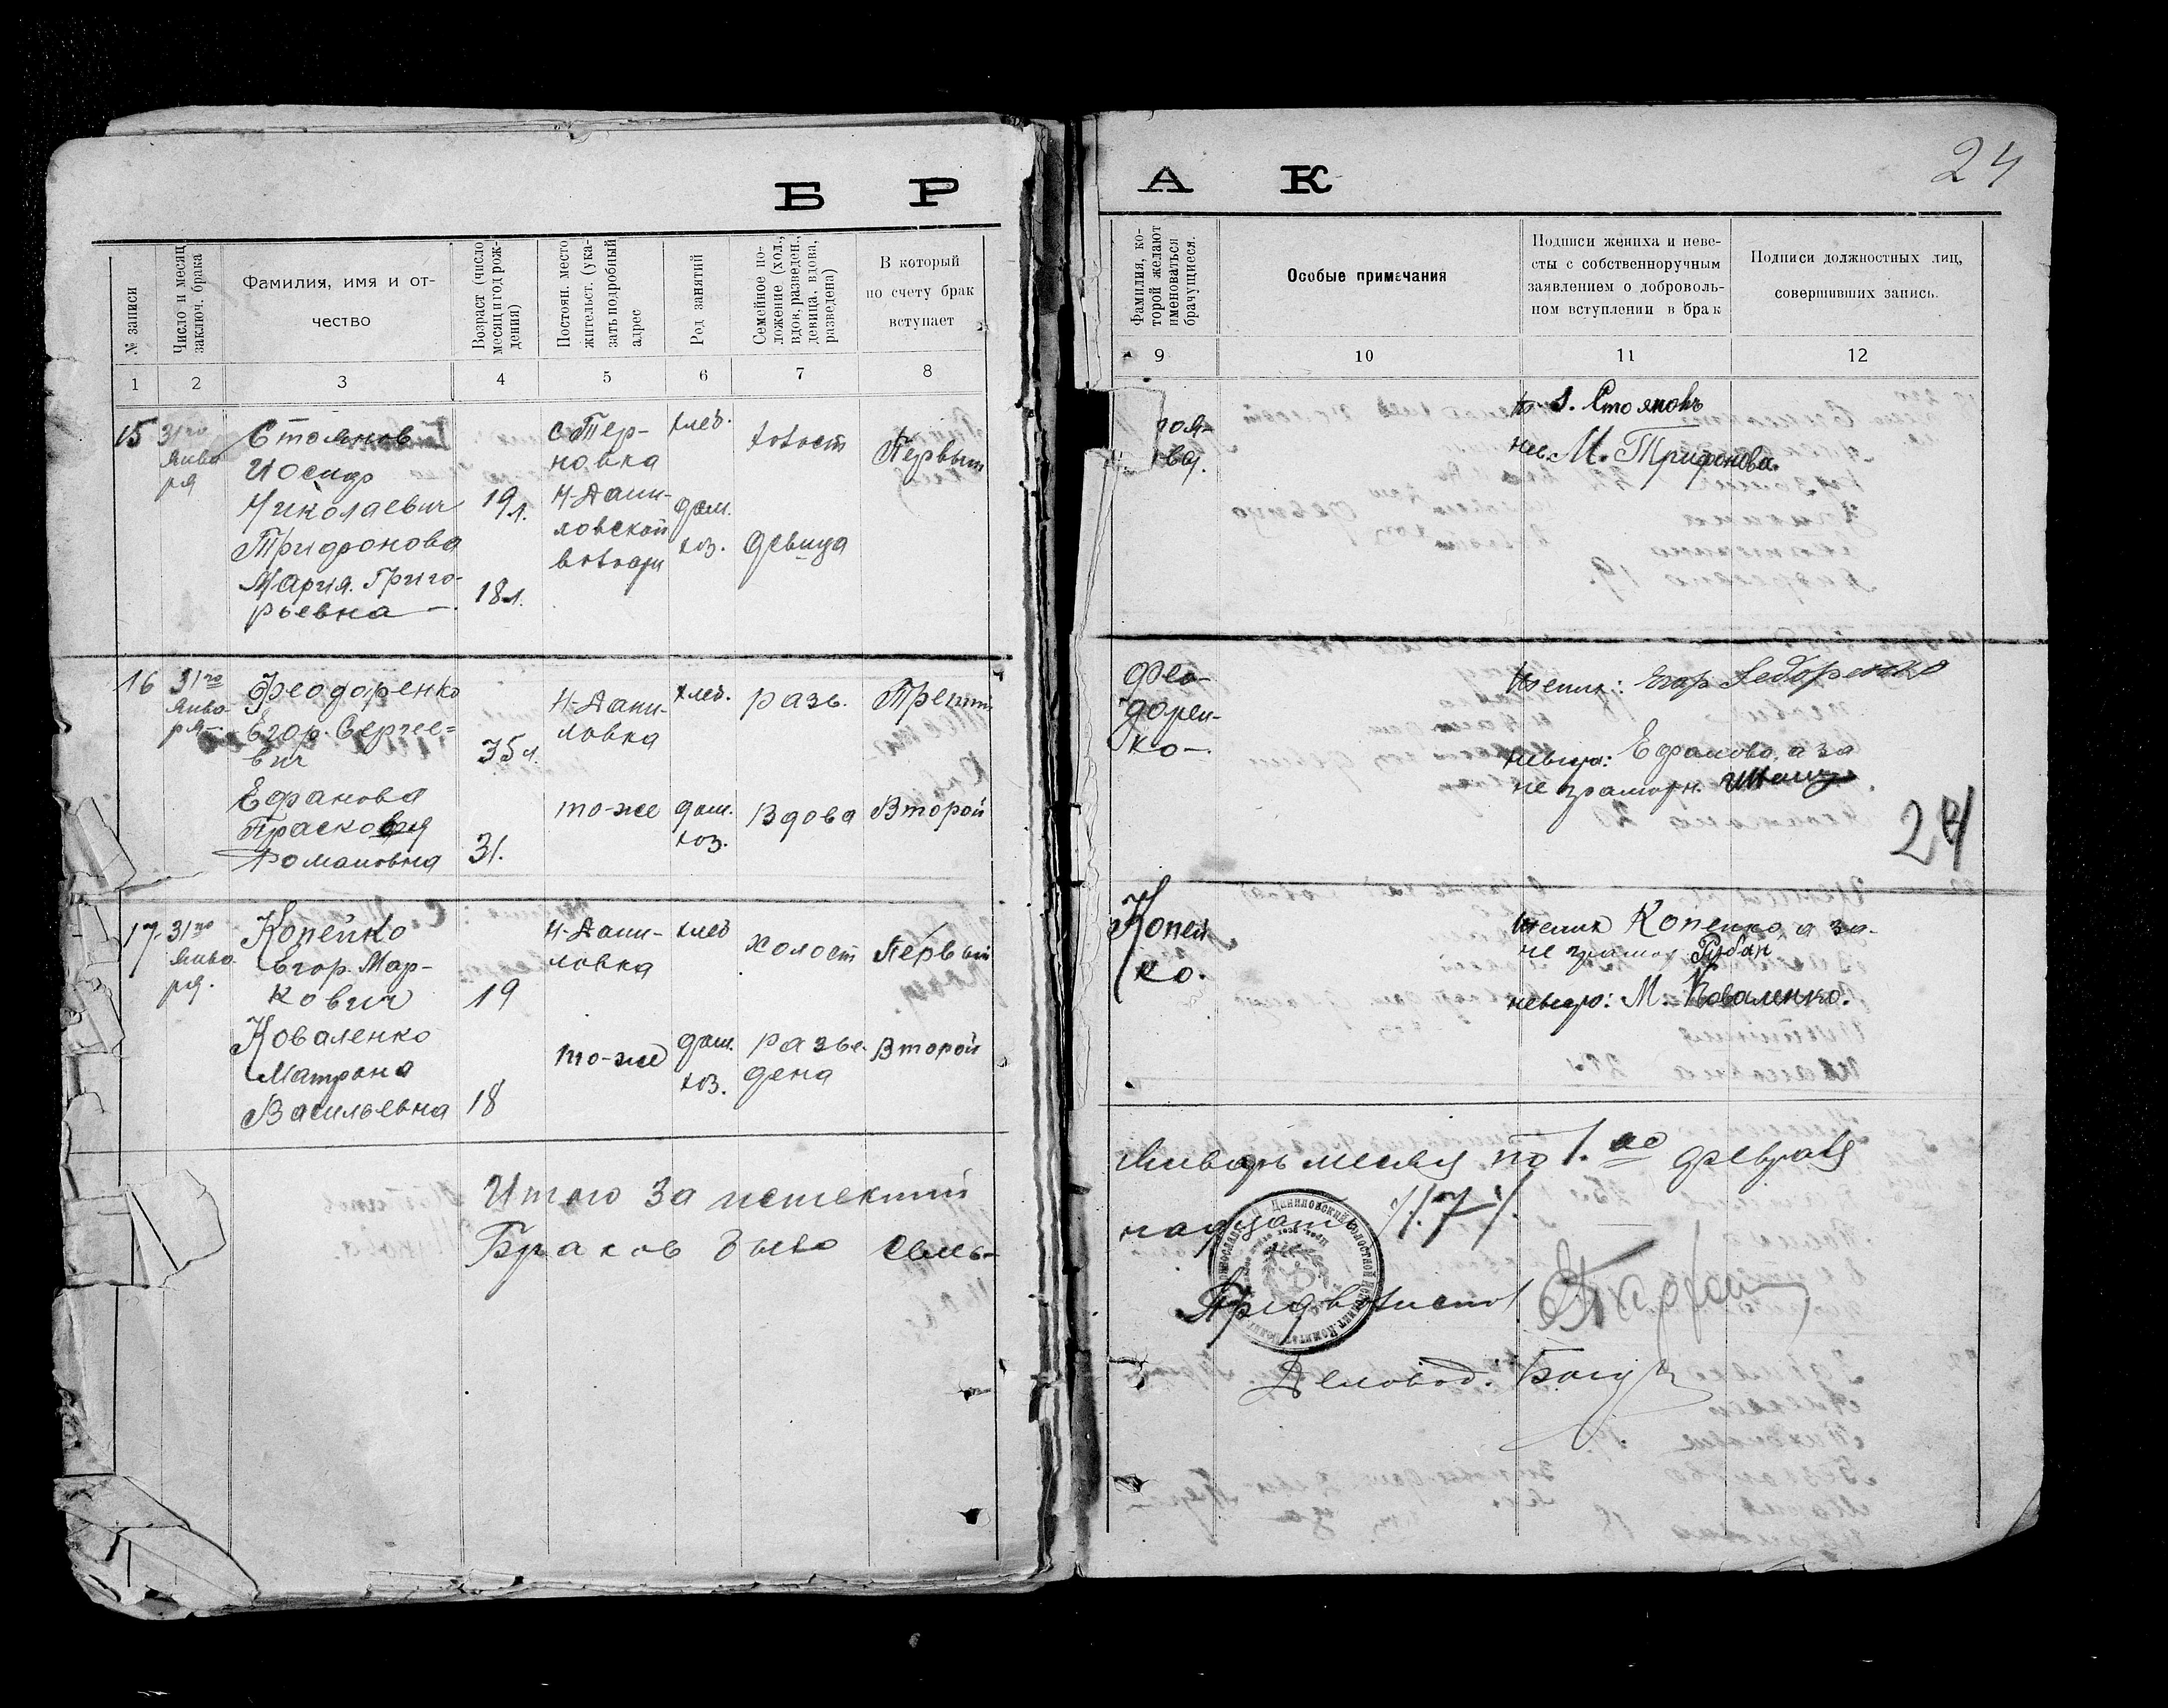 Б Р А К
24
№ записи
Число и месяц
заключ. брака
Фамилия, имя и от-
чество
Возраст (число
месяц и год рож-
дения)
Постоян. место
жительст. (ука-
зать подробный
адрес
Род занятий
Семейное по-
ложение (хол.,
вдов, разведен.,
девица, вдова,
разведена)
В который
по счету брак
вступает
Фамилия, ко-
торой желают
именоваться
брачущиеся.
Особые примечания
Подписи жениха и неве-
сты с собственноручным
заявлением о доброволь-
ном вступлении в брак
Подписи должностных лиц,
совершивших запись.
1 2 3 4 5 6 7 8 9 10 11 12
15
31го
Янва
ря
Стоянов
Иосиф
Николаевич
Трифонова
Мария Григо-
рьевна
19 л.
18 л.
с Тер-
новка
Н-Дани-
ловской
волости
хлеб.
дом.
хоз.
холост
девица
Первый
тоя-
вы.
I. Стояновъ
нев. М. Трифонова.
16
31го
Янва-
ря
Феодоренко
Егор. Сергее-
вич
Ефанова
Прасковья
Романовна
35 л.
31.
Н-Дани-
ловка
то-же
хлеб.
дом.
хоз.
разв.
Вдова
Третий
Второй
Фео-
дорен-
ко-.
Жених: Егор Федоренко
невеста: Ефанова, а за
не грамотн.
24
17.
31го
Янва-
ря.
Копейко
Егор. Мар-
кович
Коваленко
Матрона
Васильевна
19
18
Н-Дани-
ловка
то-же
хлеб
дом.
хоз.
холост
разве-
дена
Первый
Второй
Копей-
ко.
Жених Копейко а за-
не грамот Рубан
невеста: М. Коваленко.
Итого за истекший Январь месяц по 1.ое февраля
Браков было семь-надцать /17/.
Пред волиспол
Деловод.